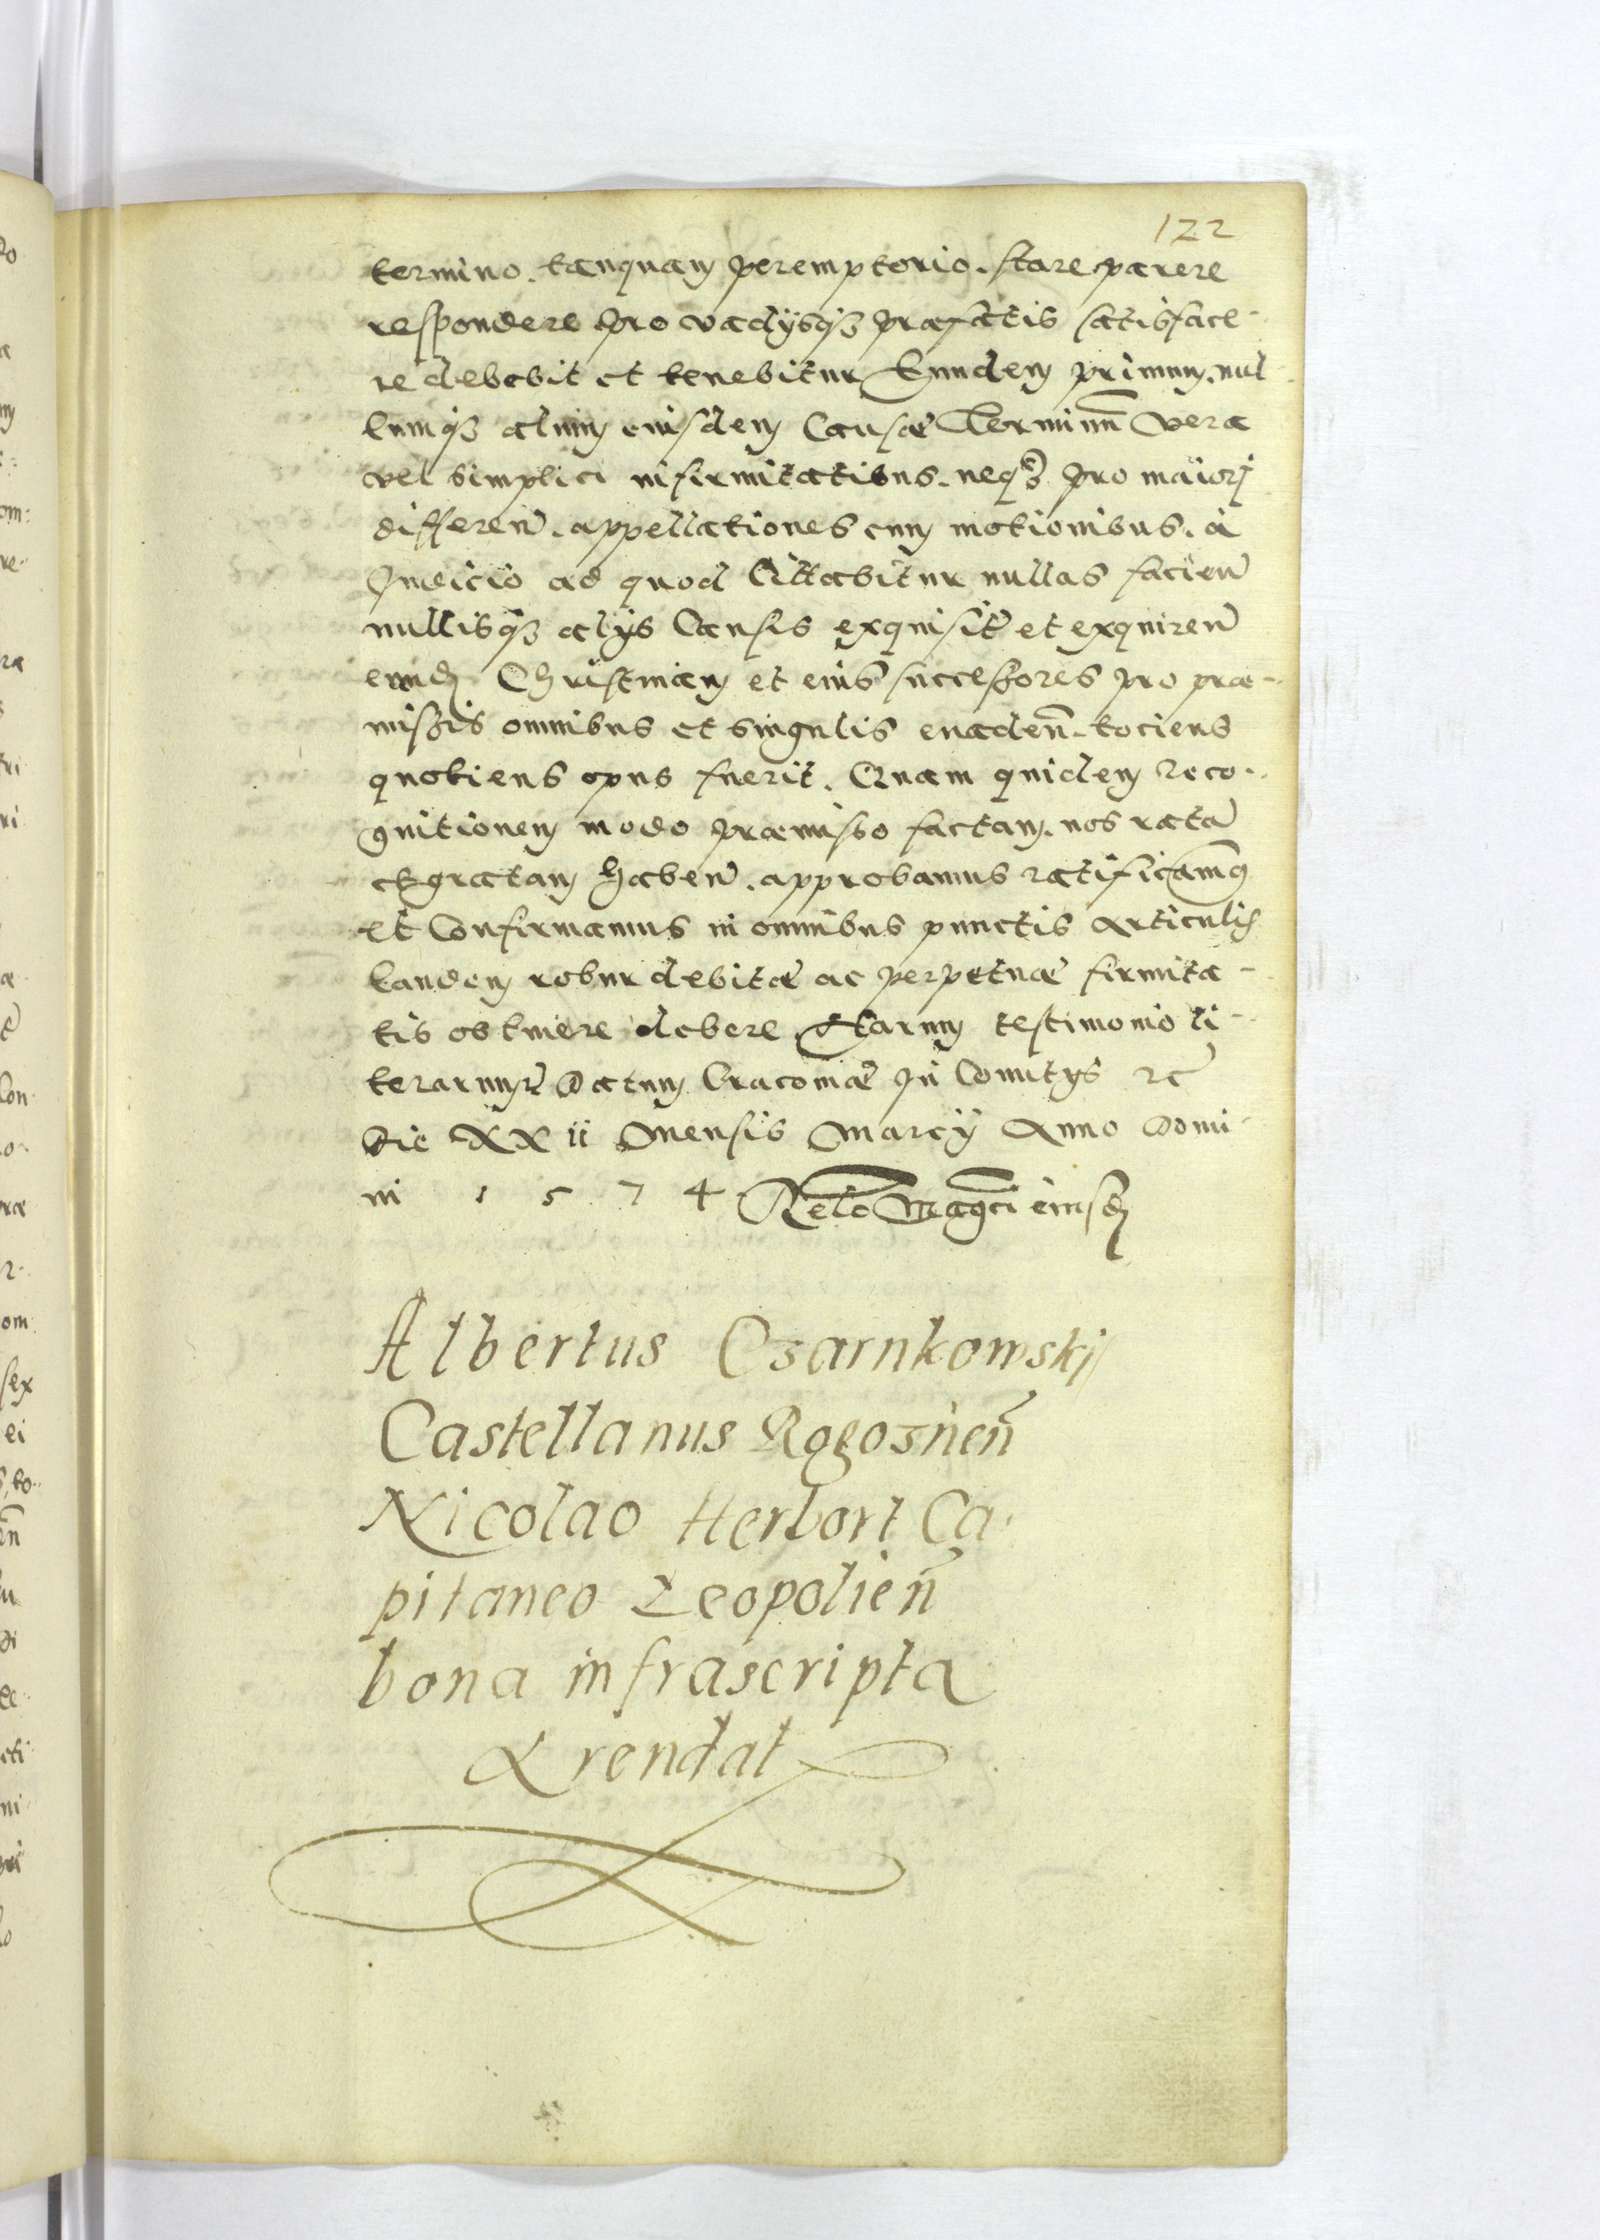 122
termino. tanquam peremptorio. stare parere
respondere pro vadÿsq3 præfatis satisface-
re debebit et tenebitur Eundem primum. nul
lumq3 alium eiusdem Causæ Terminū vera
vel simplici infirmitatibus. neq3 pro maiorj
differen̄. appellationes cum motionibus. a
Judicio ad quod Cittabitur nullas facien̄
nullisq3 alÿs Causis exquisit̄ et exquiren̄
eund Christinam et eius successores pro præ-
missis omnibus et singulis euaden̄. tociens
quotiens opus fuerit. Quam quidem reco-
gnitionem modo præmisso factam. nos ratā
et gratam haben̄. approbamus ratificamq
et Confirmamus in omnibus punctis Articulis
eandem robur debitæ ac perpetuæ firmita-
tis obtinere debere. Harum testimonio li-
terarum Datum Cracoviæ In Comitÿs rc̄
Die XX ii Mensis Marcÿ Anno Domi-
ni 1 5 7 4 Relō Mag̃ci eiusd
Albertus Czarnkowskj
Castellanus Rogoznen̄
Nicolao Herbort Ca-
pitaneo Leopolien̄
bona infrascripta
Arendat